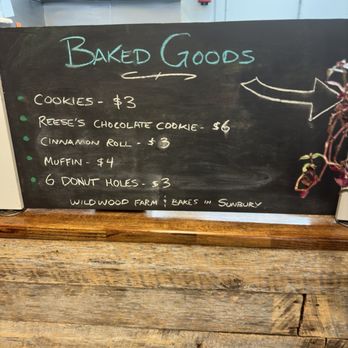 BAKED GOODS
COOKIES - $3
REESE'S CHOCOLATE COOKIE - $6
CINNAMON ROLL - $3
MUFFIN - $4
6 DONUT HOLES - $3
WILDWOOD FARM & BAKES IN SUNBURY